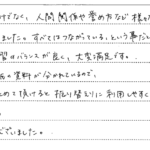 けでなく、人間関係や愛め方など様々
ました。すべてはつながっている、という事だと
習のバランスが良く、大変満足です。
の資料が分かれているので、
とめて頂けると振り替えりに利用しやすく
ございました。